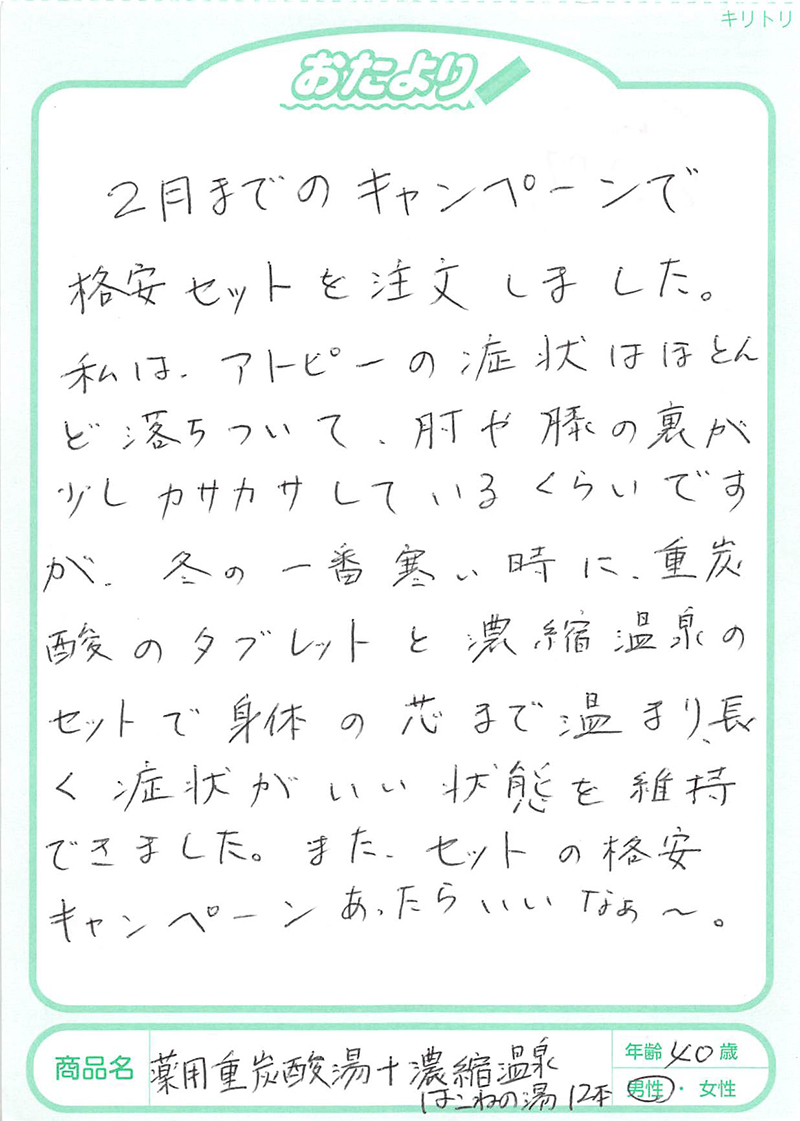 キリトリ
おたより
2月までのキャンペーンで
格安セットを注文しました。
私は、アトピーの症状はほとん
ど落ちついて、肘や膝の裏が
少しカサカサしているくらいです
が、冬の一番寒い時に、重炭
酸のタブレットと濃縮温泉の
セットで身体の芯まで温まり、長
く症状がいい状態を維持
できました。また、セットの格安
キャンペーンあったらいいなぁ〜。
商品名 薬用重炭酸湯+濃縮温泉
はこねの湯 12本
年齢 40歳
男性・女性